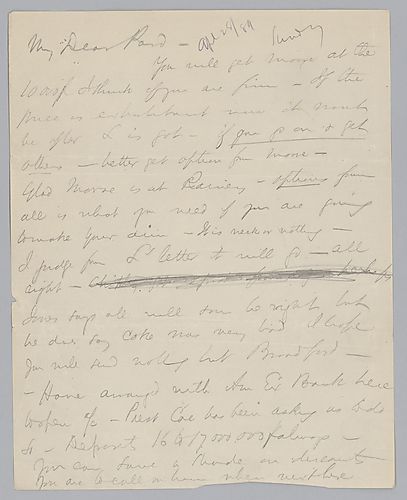 My "Dear Pard —
Apl 28/89
Sunday
You will get Moore at the
I think if you are firm — If the
price is exhorbitant now it won't
be after L is got — if you go on & get
others — better get option from Moore —
Glad Morse is at Rainey's — options from
all is what you need if you are going
to make your aim — It is neck or nothing —
I judge from L's letter to will go — all
right —
Jones says all will soon be right but
he does say coke was very bad I hope
you will send nothing but Broadford —
— Have arranged with Am Ex Bank here
to open a/c — Prest Coe has been asking us to do
so — Deposits 16 to 17,000,000 always —
You can have a hundred on discount
You are to call on him when next here